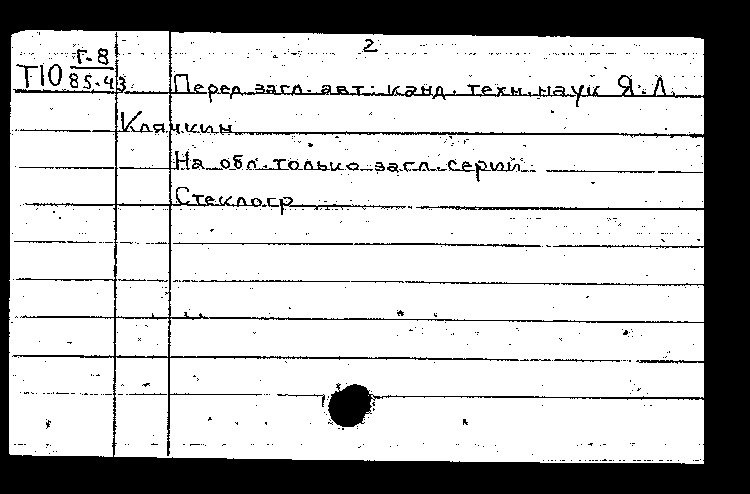 2
Г-8
П10 85-43
Перед загл. авт: канд. техн. наук Я.Л.
Клячкин
На обл. только загл. серии
Стеклогр